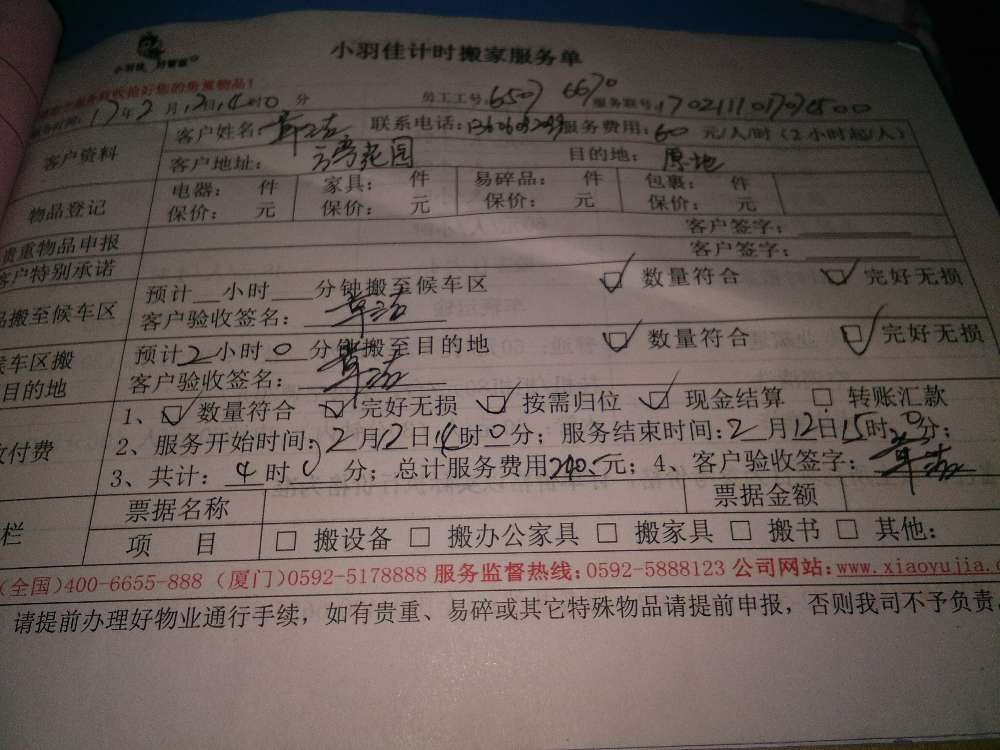 小羽佳计时搬家服务单
收拾好您的贵重物品!
17年2月12日14时0分 员工工号: 6507 6670 服务联号:
客户资料 客户姓名: 联系电话: 服务费用: 60 元/人/时(2小时起/人)
客户地址: 花园 目的地: 原地
物品登记 电器: 件 家具: 件 易碎品: 件 包裹: 件
保价: 元 保价: 元 保价: 元 保价: 元
贵重物品申报 客户签字:
客户特别承诺 客户签字:
品搬至候车区 预计__小时___分钟搬至候车区 ☑ 数量符合 ☑ 完好无损
客户验收签名:
候车区搬 预计2小时0分钟搬至目的地 ☑ 数量符合 ☑ 完好无损
目的地 客户验收签名:
1、☑ 数量符合 ☑ 完好无损 ☑ 按需归位 ☑ 现金结算 □ 转账汇款
付费 2、服务开始时间: 2月12日14时0分; 服务结束时间: 2月12日15时0分;
3、共计: 4时0分; 总计服务费用240.元; 4、客户验收签字:
栏 票据名称 票据金额
项 目 □ 搬设备 □ 搬办公家具 □ 搬家具 □ 搬书 □ 其他:
(全国)400-6655-888 (厦门)0592-5178888 服务监督热线:0592-5888123 公司网站:www.xiaoyujia.c
请提前办理好物业通行手续，如有贵重、易碎或其它特殊物品请提前申报，否则我司不予负责